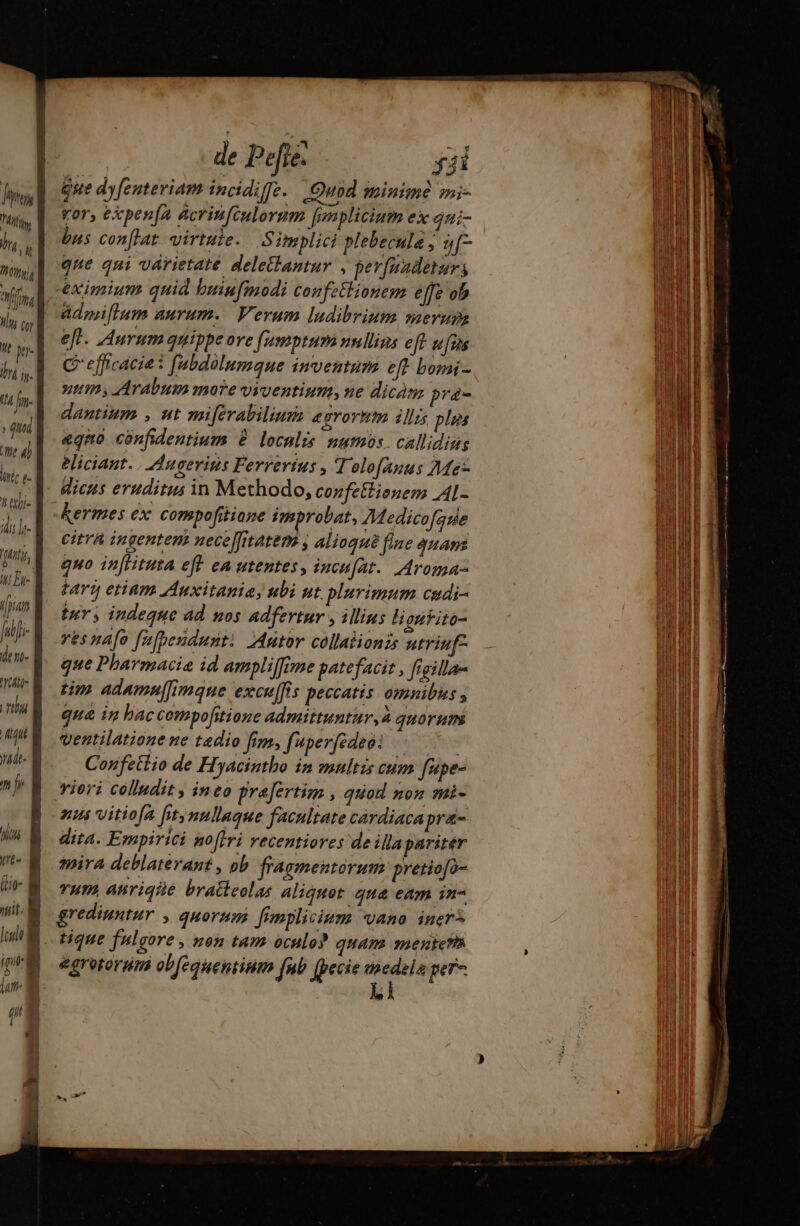 de Peſte. 531
que dyſenteriam incidiſſe. Quod minimè mi-
ror, expenſa acriuſculorum ſimplicium ex qui-
bus conſtat virtute. Simplici plebecula, uſ-
que qui varietate delectantur, perſuadetur,
eximium quid huiuſmodi confectionem eſſe ob
admiſtum aurum. Verum ludibrium merum
eſt. Aurum quippe ore ſumptum nullius eſt uſus
& efficaciæ: ſubdolumque inventum eſt homi-
num, Arabum more viventium, ne dicam præ-
dantium, ut miſerabilium ægrorum illis plus
æquo confidentium è loculis numos callidius
eliciant. Augerius Ferrerius, Toloſanus Me-
dicus eruditus in Methodo, confectionem Al-
kermes ex compoſitione improbat, Medicoſque
citrà ingentem neceſſitatem, alioquè ſine quam
quo inſtituta eſt ea utentes, incuſat. Aroma-
tarij etiam Auxitaniæ, ubi ut plurimum cudi-
tur, indeque ad nos adfertur, illius ligurito-
res naſo ſuſpendunt. Autor collationis utriuſ-
que Pharmaciæ id ampliſſime patefacit, ſigilla-
tim adamuſſimque excuſſis peccatis omnibus,
quæ in hac compoſitione admittuntur, à quorum
ventilatione ne tædio ſim, ſuperſedeo.
Confectio de Hyacintho in multis cum ſupe-
riori colludit, in eo præſertim, quod non mi-
nus vitioſa ſit, nullaque facultate cardiaca præ-
dita. Empirici noſtri recentiores de illa pariter
mira deblaterant, ob fragmentorum pretioſo-
rum, aurique bracteolas aliquot quæ eam in-
grediuntur, quorum ſimplicium vano iner-
tique fulgore, non tam oculos quam mentem
ægrotorum obſequentium ſub ſpecie medelæ per-
Ll